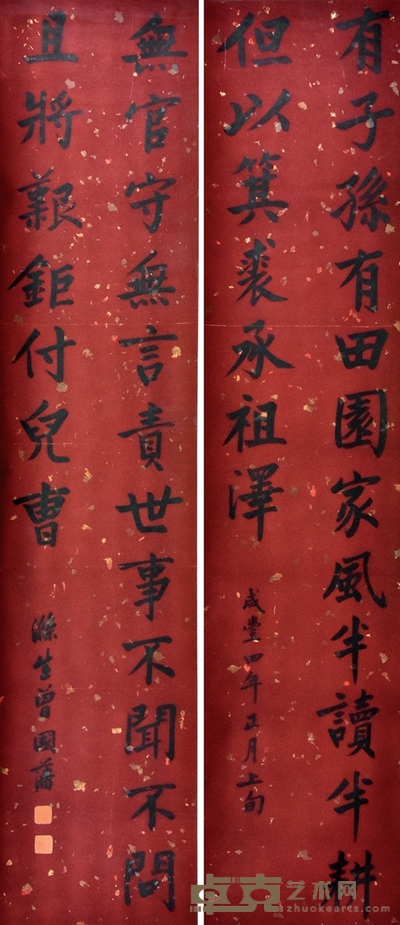 有子孫有田園家風半讀半耕
但以箕裘承祖澤
咸豐四年正月上旬
無官守無言責世事不聞不問
且將艱鉅付兒曹
滌生曾國藩
卓克艺术网
zhuokearts.com